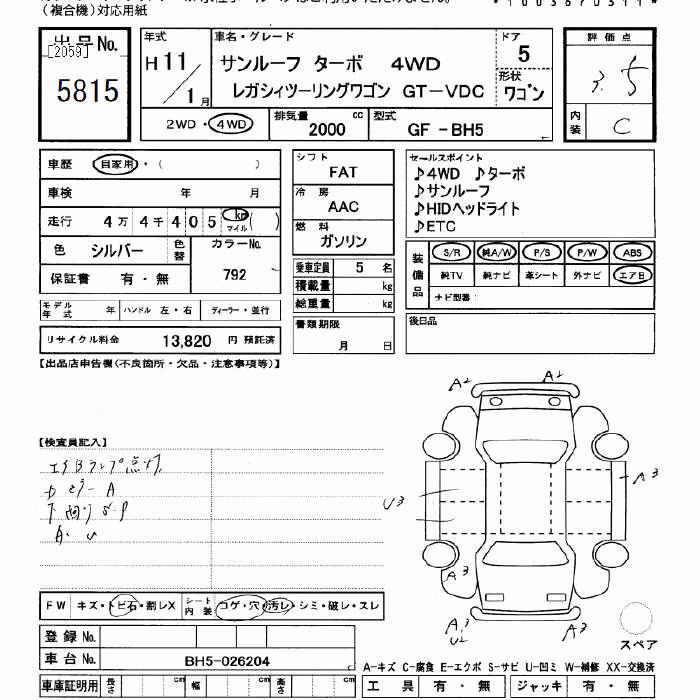 (複合機)対応用紙
出品No.
[2059]
5815
年式
H11/1月
車名・グレード
サンルーフ ターボ 4WD
レガシィツーリングワゴン GT-VDC
ドア
5
形状
ワゴン
評価点
3.5
内装
C
2WD・4WD
排気量
2000 cc
型式
GF-BH5
車歴 自家用・( )
車検 年 月
走行 4万4千405 km マイル ( )
色 シルバー 色替
カラーNo.
792
保証書 有・無
モデル年式 年 ハンドル 左・右 ディーラー・並行
リサイクル料金 13,820 円 預託済
シフト
FAT
冷房
AAC
燃料
ガソリン
乗車定員 5 名
積載量 kg
総重量 kg
書類期限
月 日
セールスポイント
♪4WD ♪ターボ
♪サンルーフ
♪HIDヘッドライト
♪ETC
装備品
S/R 純A/W P/S P/W ABS
純TV 純ナビ 革シート 外ナビ エアB
ナビ型番
後日品
【出品店申告欄(不良箇所・欠品・注意事項等)】
【検査員記入】
エアBランプ点灯
A2 A2
A3
U3
A3
A3
U2
A3
スペア
FW キズ・トビ石・割レX シート内装 コゲ・穴・汚レ・シミ・破レ・スレ
登録No.
車台No. BH5-026204
A-キズ C-腐食 E-エクボ S-サビ U-凹ミ W-補修 XX-交換済
車庫証明用 長さ cm 幅 cm 高さ cm
工具 有・無 ジャッキ 有・無